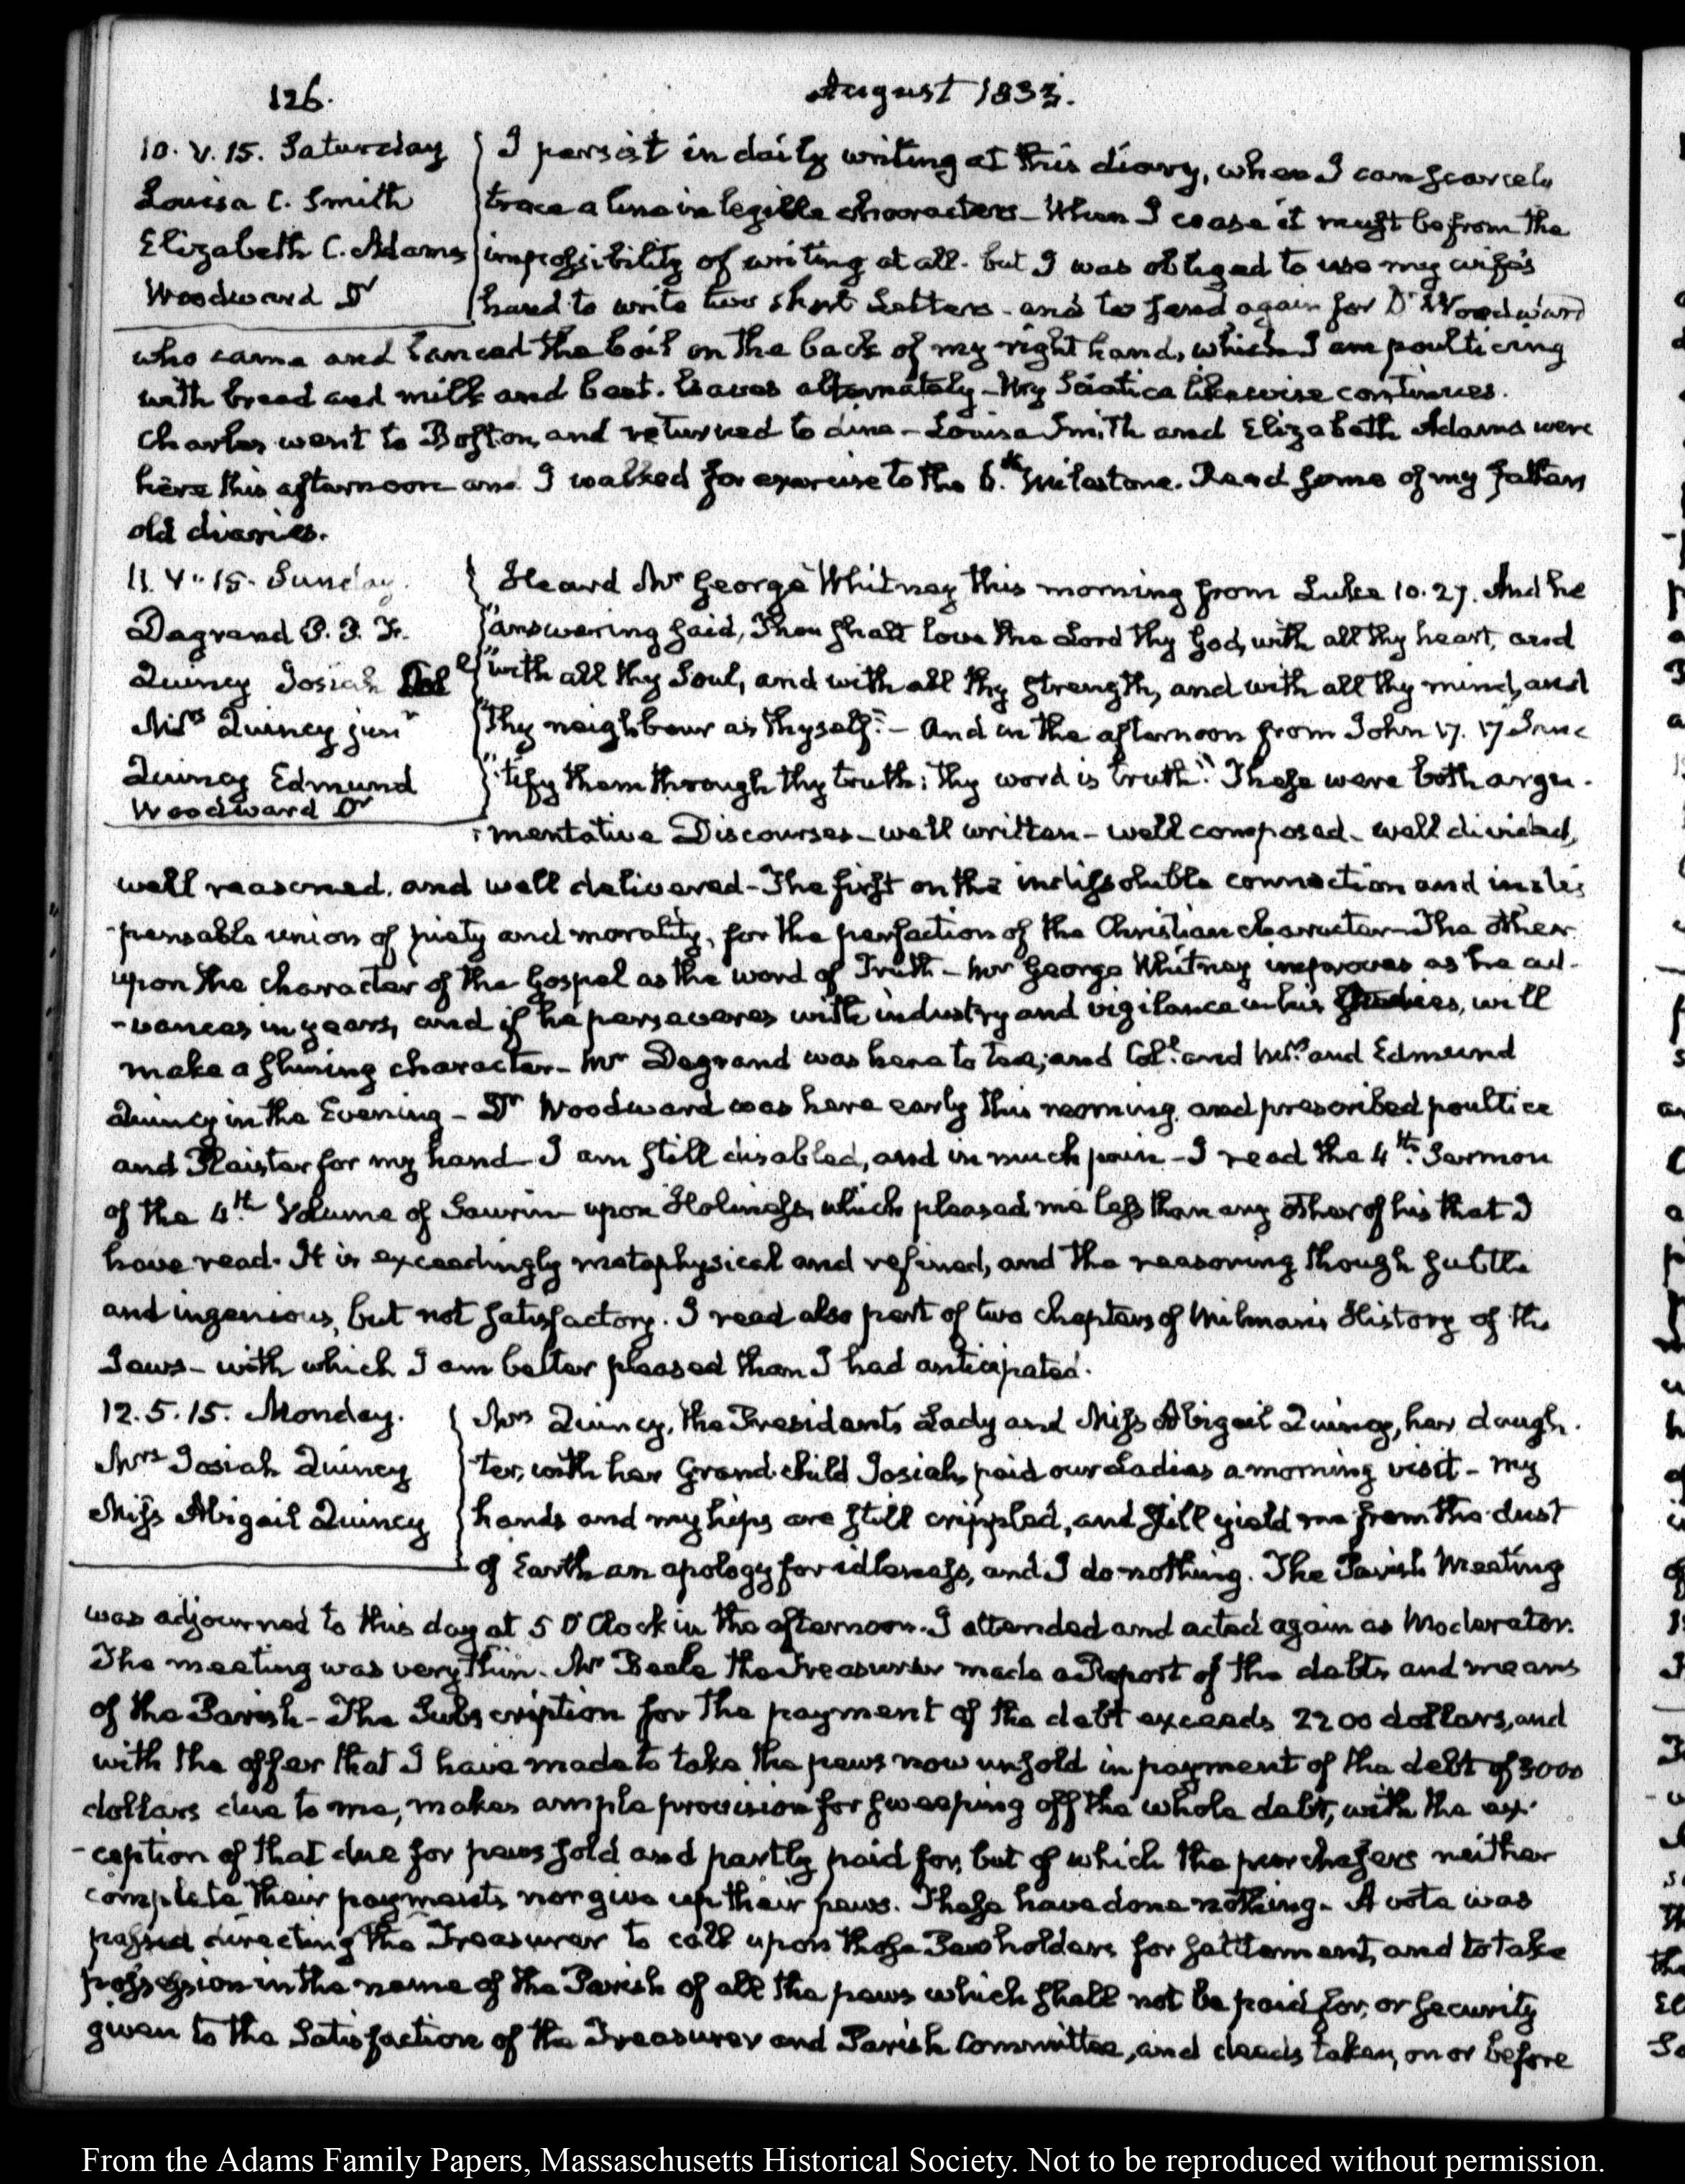 126.
August 1833.
10. V. 15. Saturday
Louisa C. Smith
Elizabeth C. Adams
Woodward Dr
I persist in daily writing at this diary, when I can scarcely
trace a line in legible characters - When I cease it must be from the
impossibility of writing at all. but I was obliged to use my wife's
hand to write two short Letters - and to send again for Dr Woodward
who came and lanced the boil on the back of my right hand, which I am poulticing
with bread and milk and beet. leaves alternately - My Sciatica likewise continues.
Charles went to Boston, and returned to dine - Louisa Smith and Elizabeth Adams were
here this afternoon and I walked for exercise to the 6.th Milestone. Read some of my fathers
old diaries.
11. V. 15. Sunday.
Degrand P. P. F.
Quincy Josiah
Mrs Quincy junr
Quincy Edmund
Woodward Dr
Heard Mr George Whitney this morning from Luke 10. 27. And he
"answering said, Thou shalt love the Lord thy God, with all thy heart, and
"with all thy Soul, and with all thy strength, and with all thy mind, and
"thy neighbour as thyself." - And in the afternoon from John 17. 17 Sanc
":tify them through thy truth: thy word is truth." These were both argu-
:mentative Discourses - well written - well composed - well divided,
well reasoned, and well delivered - The first on the indissoluble connection and indis
-pensable union of piety and morality, for the perfection of the Christian character - The other
upon the character of the Gospel as the word of Truth - Mr George Whitney improves as he ad-
-vances in years, and if he perseveres with industry and vigilance in his Studies, will
make a shining character - Mr Degrand was here to tea; and Col.l and Mrs and Edmund
Quincy in the Evening - Dr Woodward was here early this morning, and prescribed poultice
and Plaister for my hand - I am still disabled, and in much pain - I read the 4th. Sermon
of the 4th. Volume of Saurin upon Holiness, which pleased me less than any other of his that I
have read. It is exceedingly metaphysical and refined, and the reasoning though subtle
and ingenious, but not satisfactory. I read also part of two chapters of Milman's History of the
Jews - with which I am better pleased than I had anticipated.
12. 5. 15. Monday.
Mrs Josiah Quincy
Miss Abigail Quincy
Mrs Quincy, the President's Lady and Miss Abigail Quincy, her daugh-
ter, with her Grand-child Josiah, paid our Ladies a morning visit - My
hands and my hips are still crippled, and still yield me from the dust
of Earth an apology for idleness, and I do nothing. The Parish Meeting
was adjourned to this day at 5 O'Clock in the afternoon. I attended and acted again as Moderator.
The meeting was very thin. Mr Beale the Treasurer made a Report of the debts and means
of the Parish - The Subscription for the payment of the debt exceeds 2200 dollars, and
with the offer that I have made to take the pews now unsold in payment of the debt of 3000
dollars due to me, makes ample provision for sweeping off the whole debt, with the ex-
-ception of that due for pews sold and partly paid for, but of which the purchasers neither
complete their payments, nor give up their pews. These have done nothing. A vote was
passed directing the Treasurer to call upon those Pewholders for settlement, and to take
possession in the name of the Parish of all the pews which shall not be paid for, or security
given to the Satisfaction of the Treasurer and Parish Committee, and deeds taken, on or before
From the Adams Family Papers, Massachusetts Historical Society. Not to be reproduced without permission.